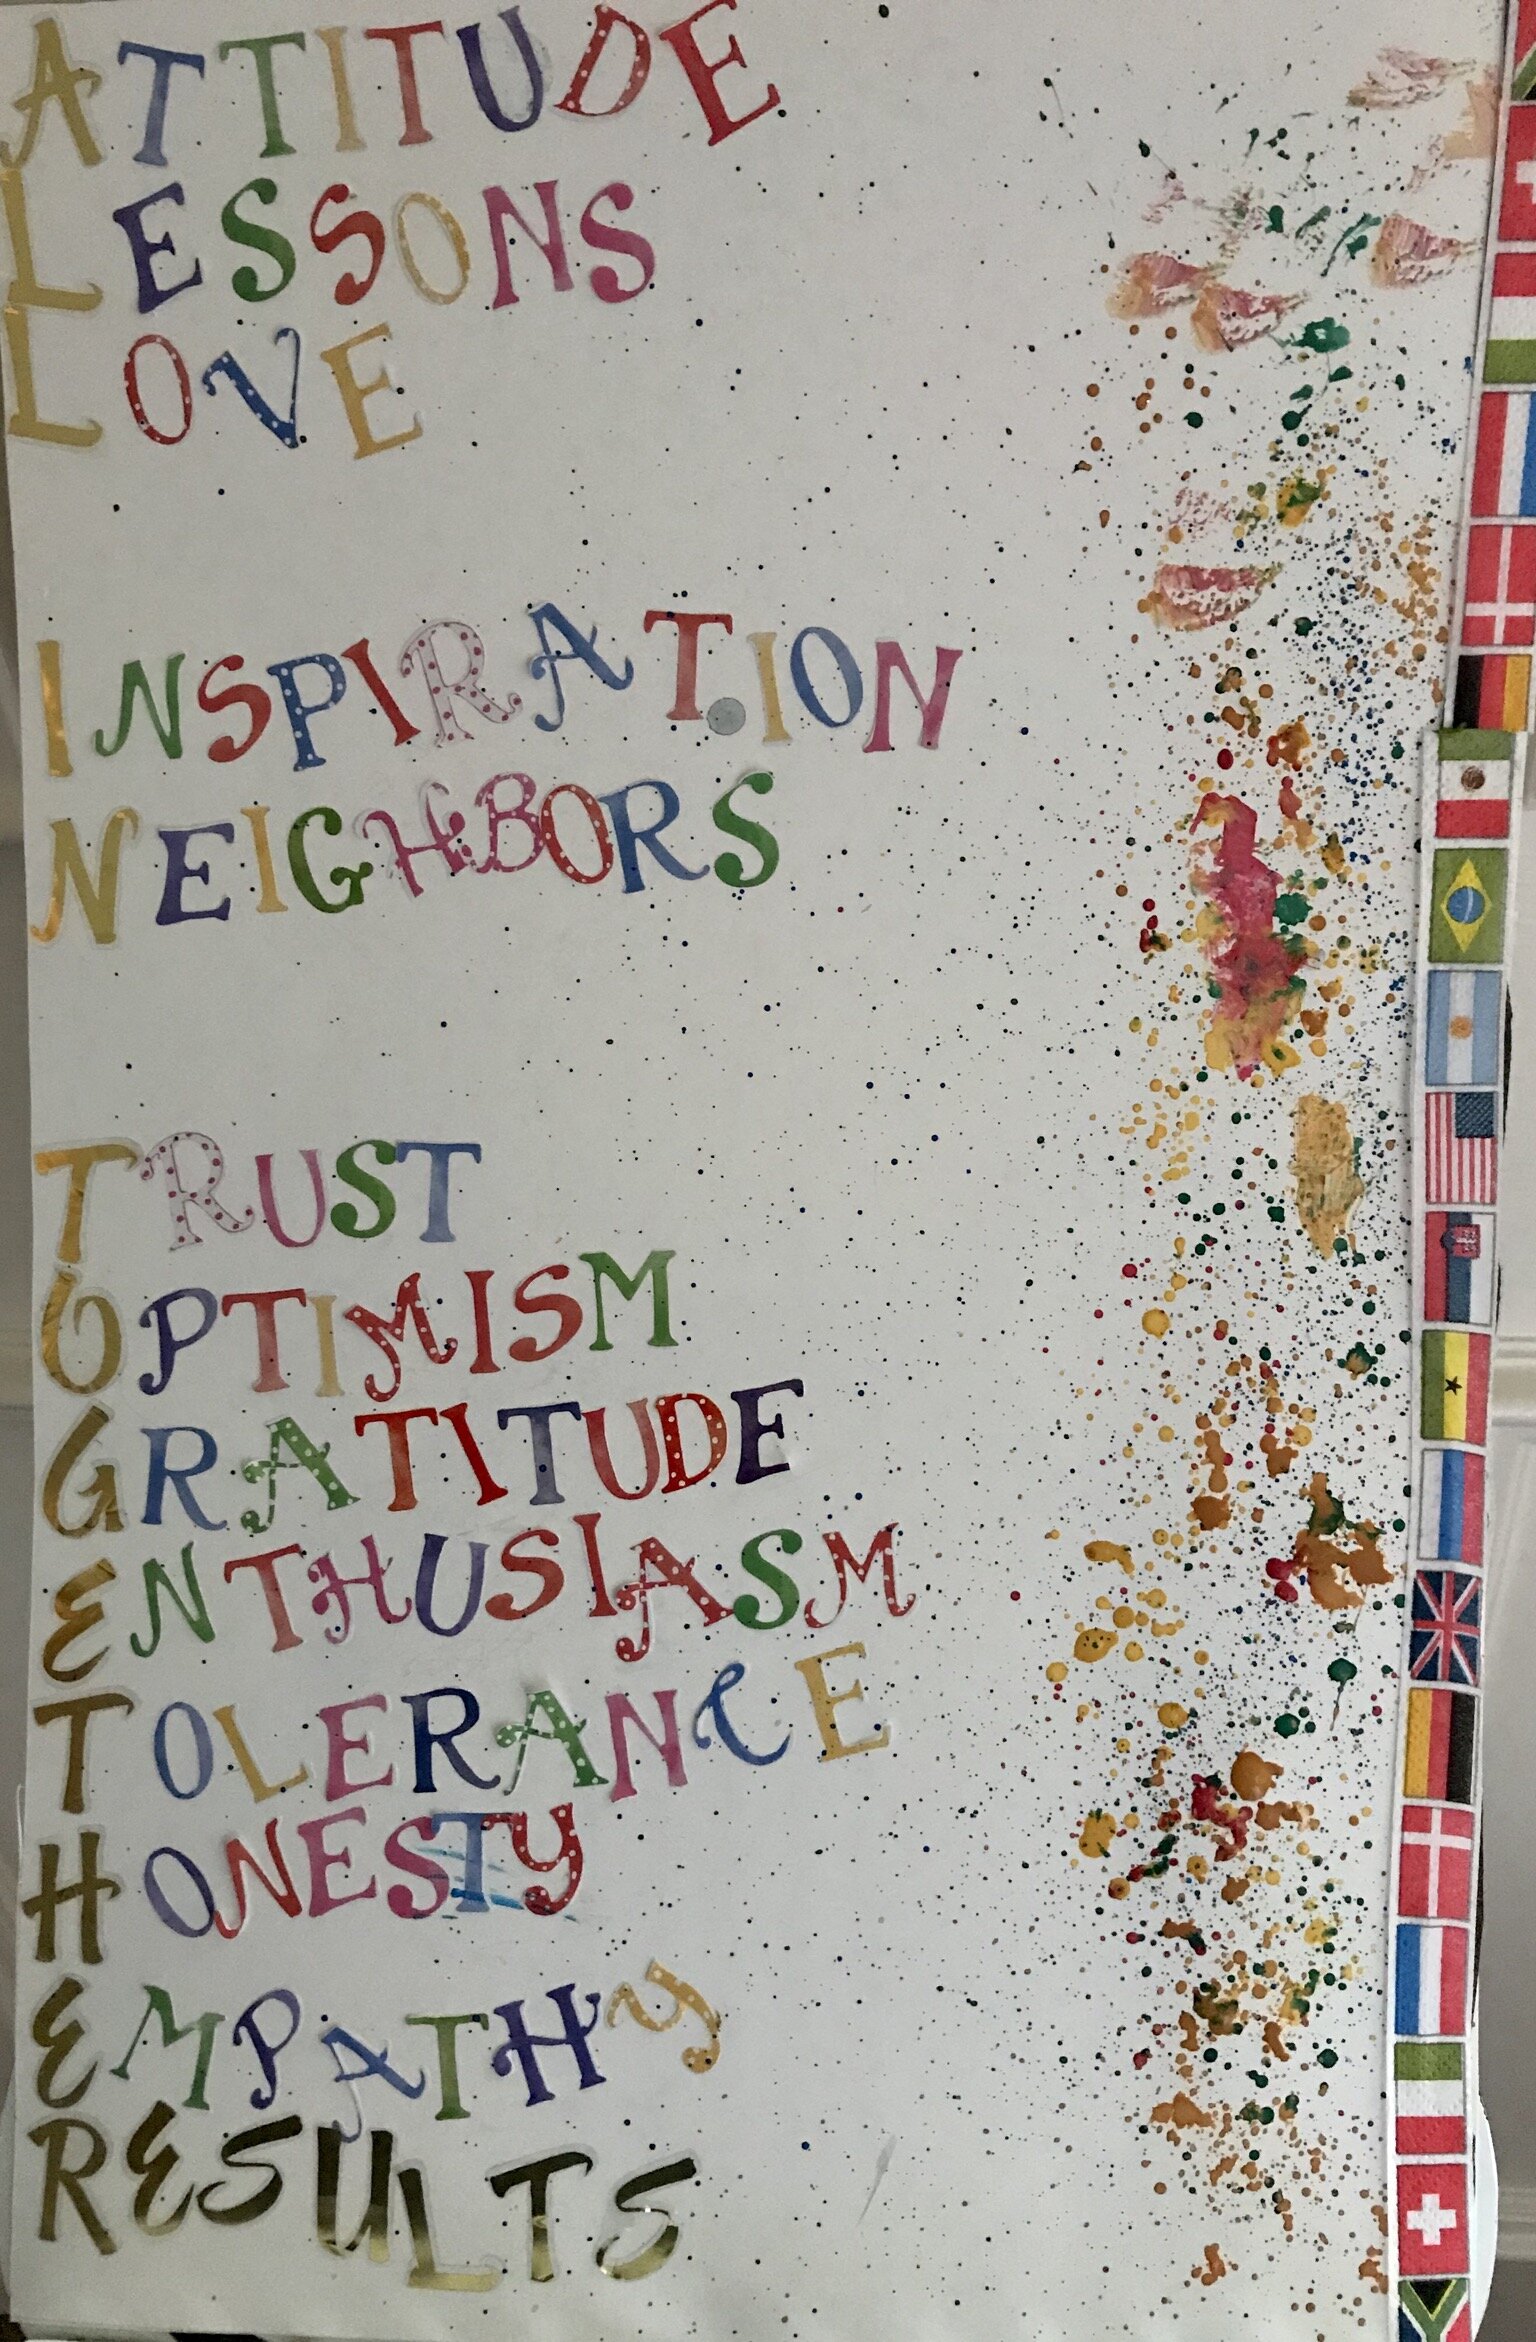 ATTITUDE
LESSONS
LOVE
INSPIRATION
NEIGHBORS
TRUST
OPTIMISM
GRATITUDE
ENTHUSIASM
TOLERANCE
HONESTY
EMPATHY
RESULTS